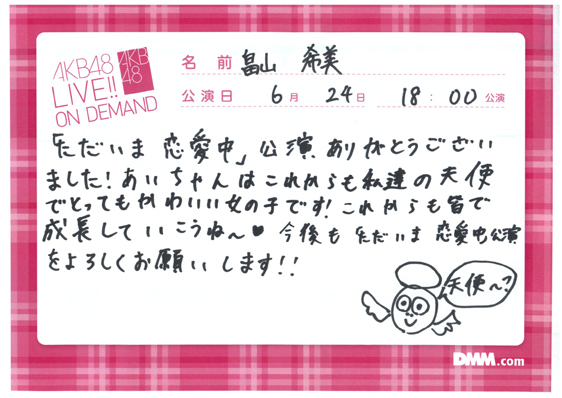 AKB48
LIVE!!
ON DEMAND
AKB
48
名 前 畠山 希美
公演日 6月 24日 18:00公演
「ただいま 恋愛中」公演ありがとうござい
ました!あいちゃんはこれからも私達の天使
でとってもかわいい女の子です!これからも皆で
成長していこうね〜♥ 今後も ただいま 恋愛中公演
をよろしくお願いします!!
天使〜?
DMM.com